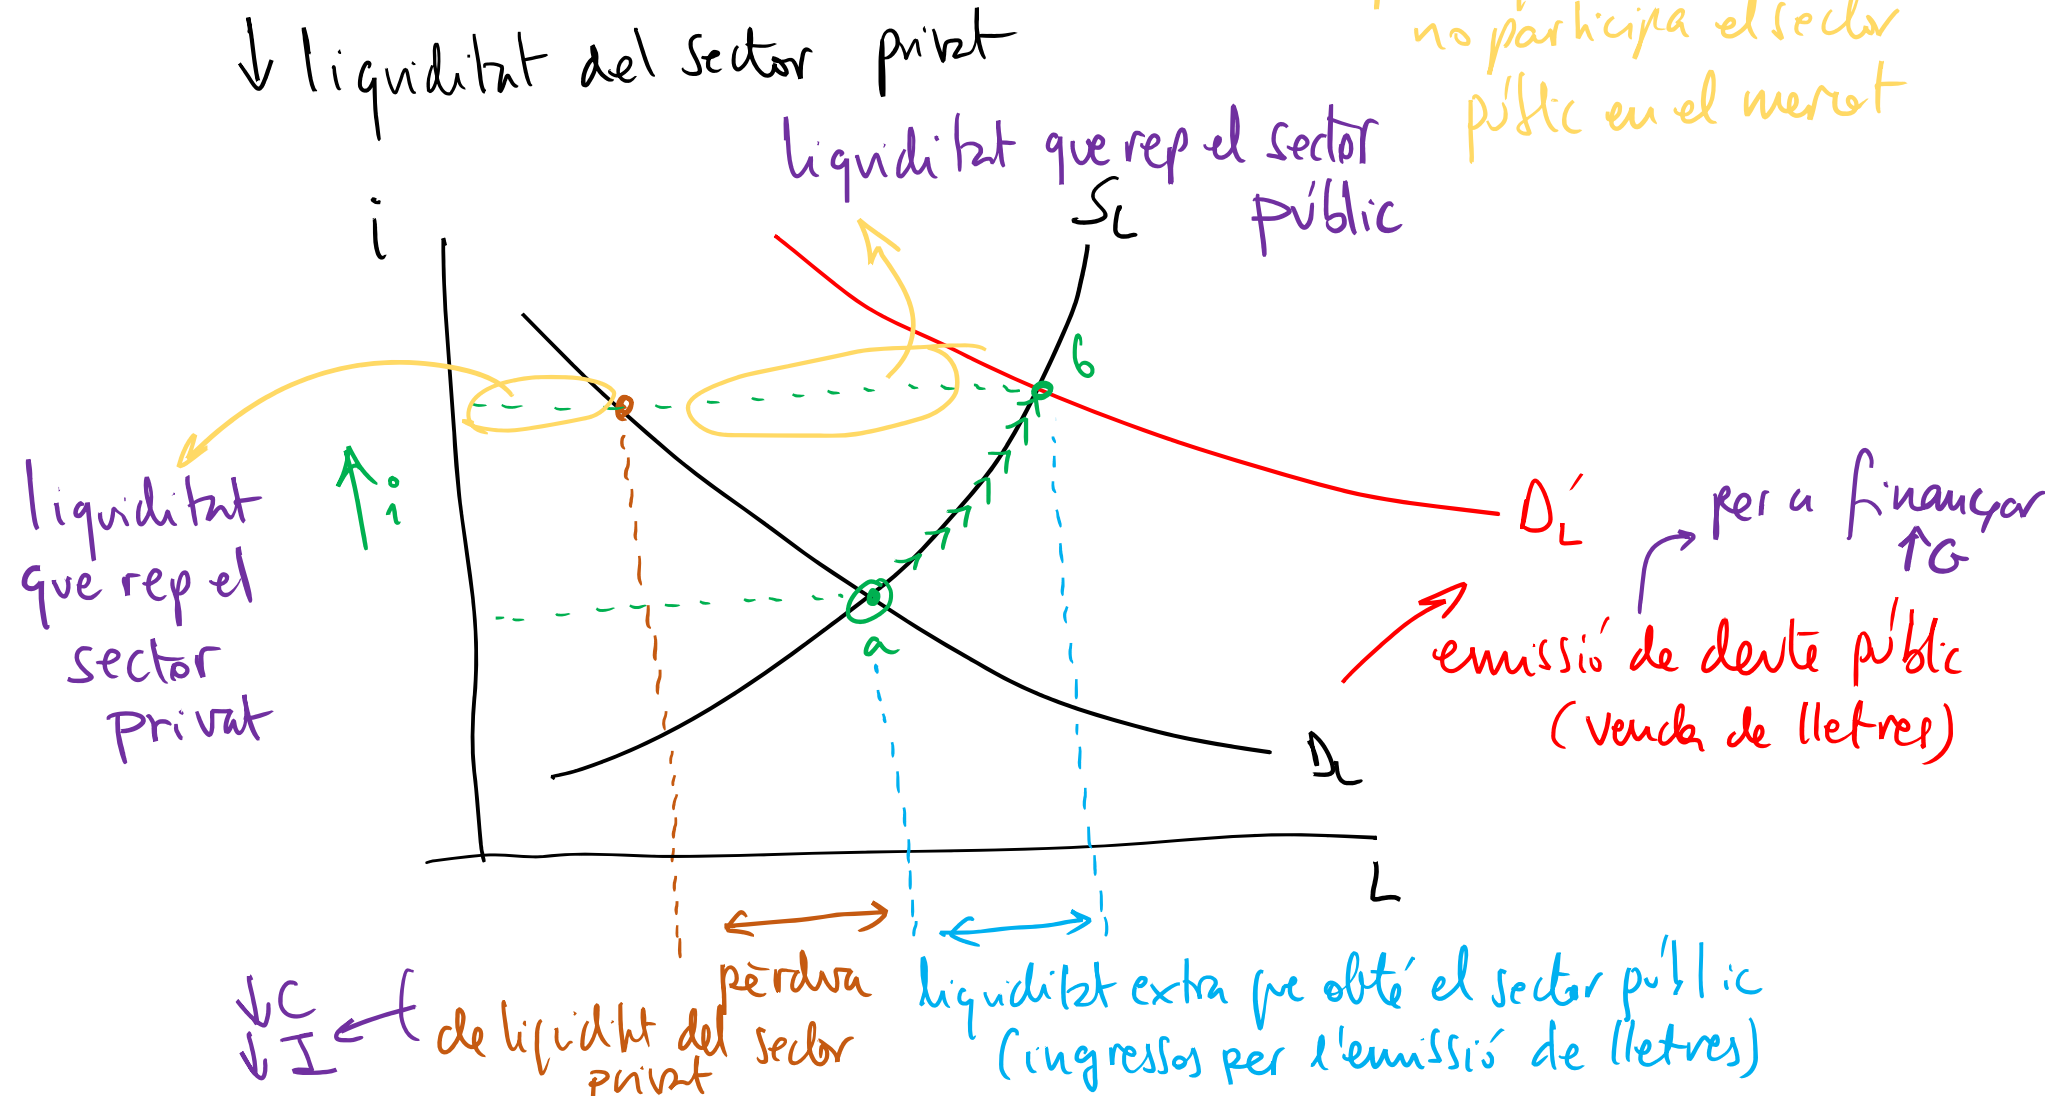 ↓ liquiditat del sector privat
no participa el sector
públic en el mercat
liquiditat que rep el sector
públic
i
S_L
b
liquiditat
que rep el
sector
privat
↑ i
a
D_L'
per a finançar
↑G
emissió de deute públic
(venda de lletres)
D_L
L
↓C
↓I
pèrdua
de liquiditat del sector
privat
liquiditat extra que obté el sector públic
(ingressos per l'emissió de lletres)